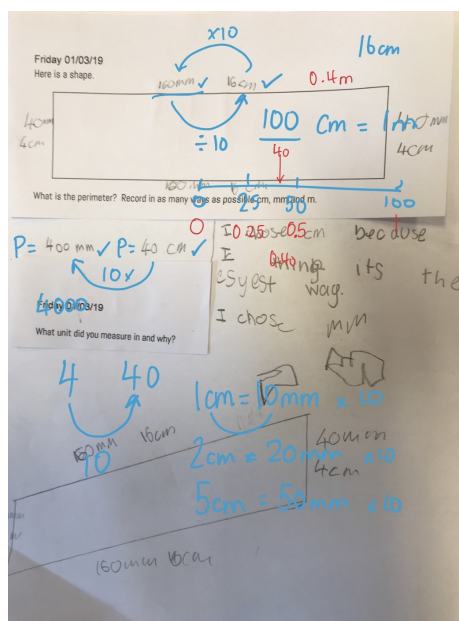 x10
16cm
Friday 01/03/19
Here is a shape.
160mm ✓ 16cm ✓ 0.4m
40mm
4cm
÷10
100 cm = 1m
40
40mm
4cm
What is the perimeter? Record in as many ways as possible cm, mm and m.
0 25 50 100
0 0.25 0.5 1
0.40
P= 400 mm ✓ P= 40 cm ✓
10x
I chose cm becduse
I its the
esyest way.
I chose mm
4000
Friday 01/03/19
What unit did you measure in and why?
4 40
10
1cm = 10mm x 10
2cm = 20mm x10
5cm = 50mm x10
160mm 16cm
40mm
4cm
160mm 16cm